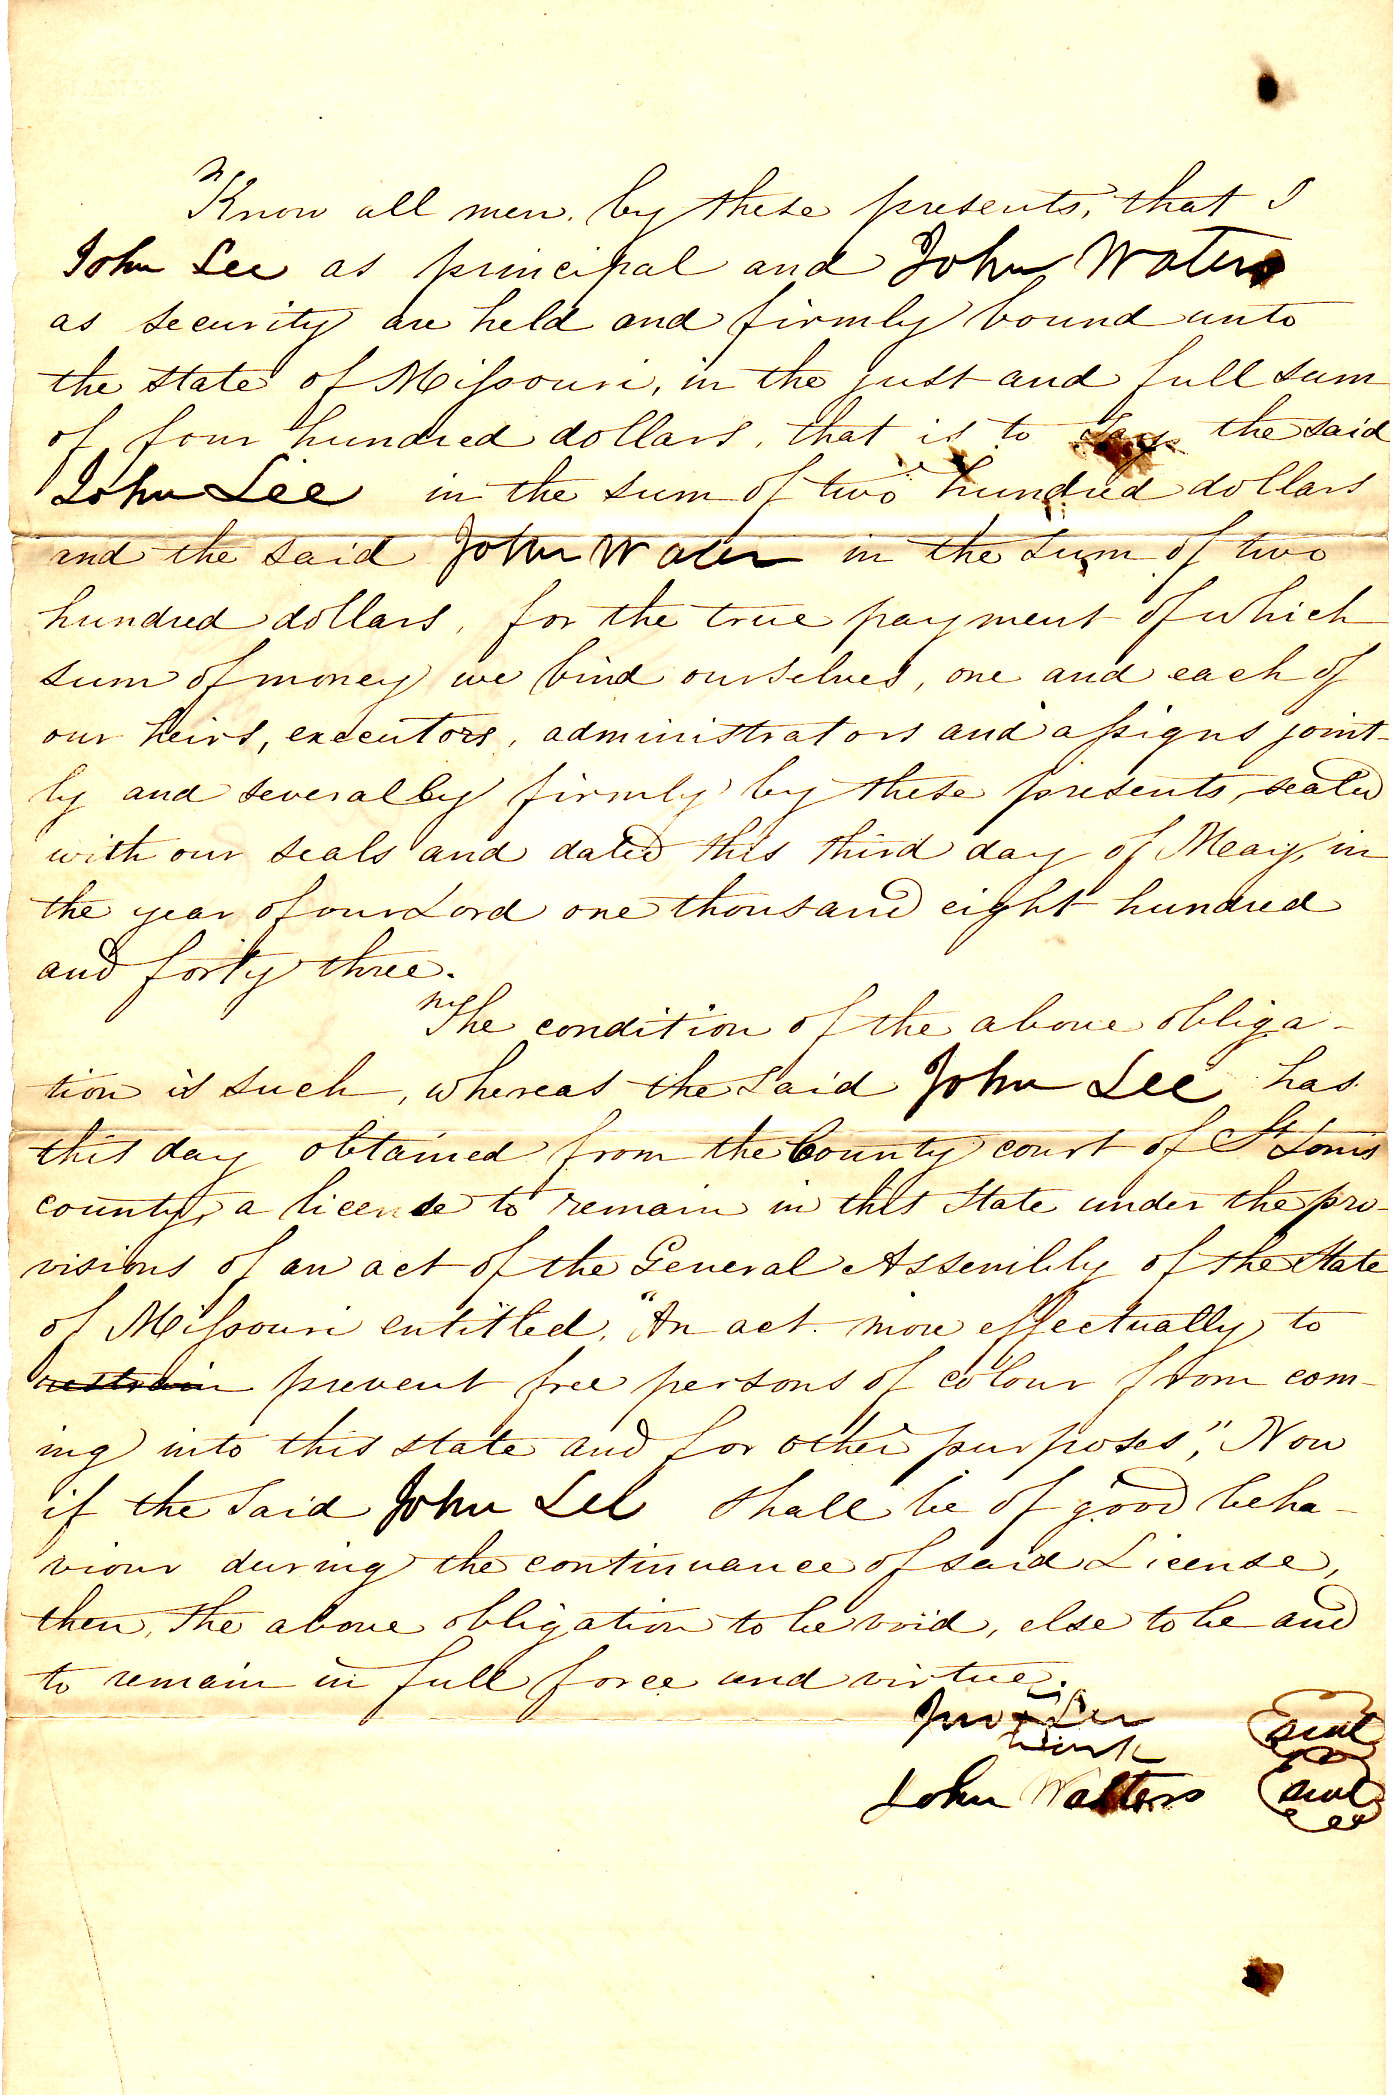 "Know all men by these presents, that I
John Lee as principal and John Waters
as security are held and firmly bound unto
the state of Missouri, in the just and full sum
of four hundred dollars, that is to say the said
John Lee in the sum of two hundred dollars
and the said John Water in the sum of two
hundred dollars, for the true payment of which
sum of money we bind ourselves, one and each of
our heirs, executors, administrators and assigns joint-
ly and severally firmly by these presents, sealed
with our seals and dated this third day of May, in
the year of our Lord one thousand eight hundred
and forty three.
"The condition of the above obliga-
tion is such, whereas the said John Lee has
this day obtained from the County court of St Louis
county, a license to remain in this State under the pro-
visions of an act of the General Assembly of the State
of Missouri entitled, "An act more effectually to
restrain prevent free persons of colour from com-
ing into this state and for other purposes", Now
if the said John Lee shall be of good beha-
viour during the continuance of said License,
then, the above obligation to be void, else to be and
to remain in full force and virtue.
his
Jno x Lee seal
mark
John Walters seal